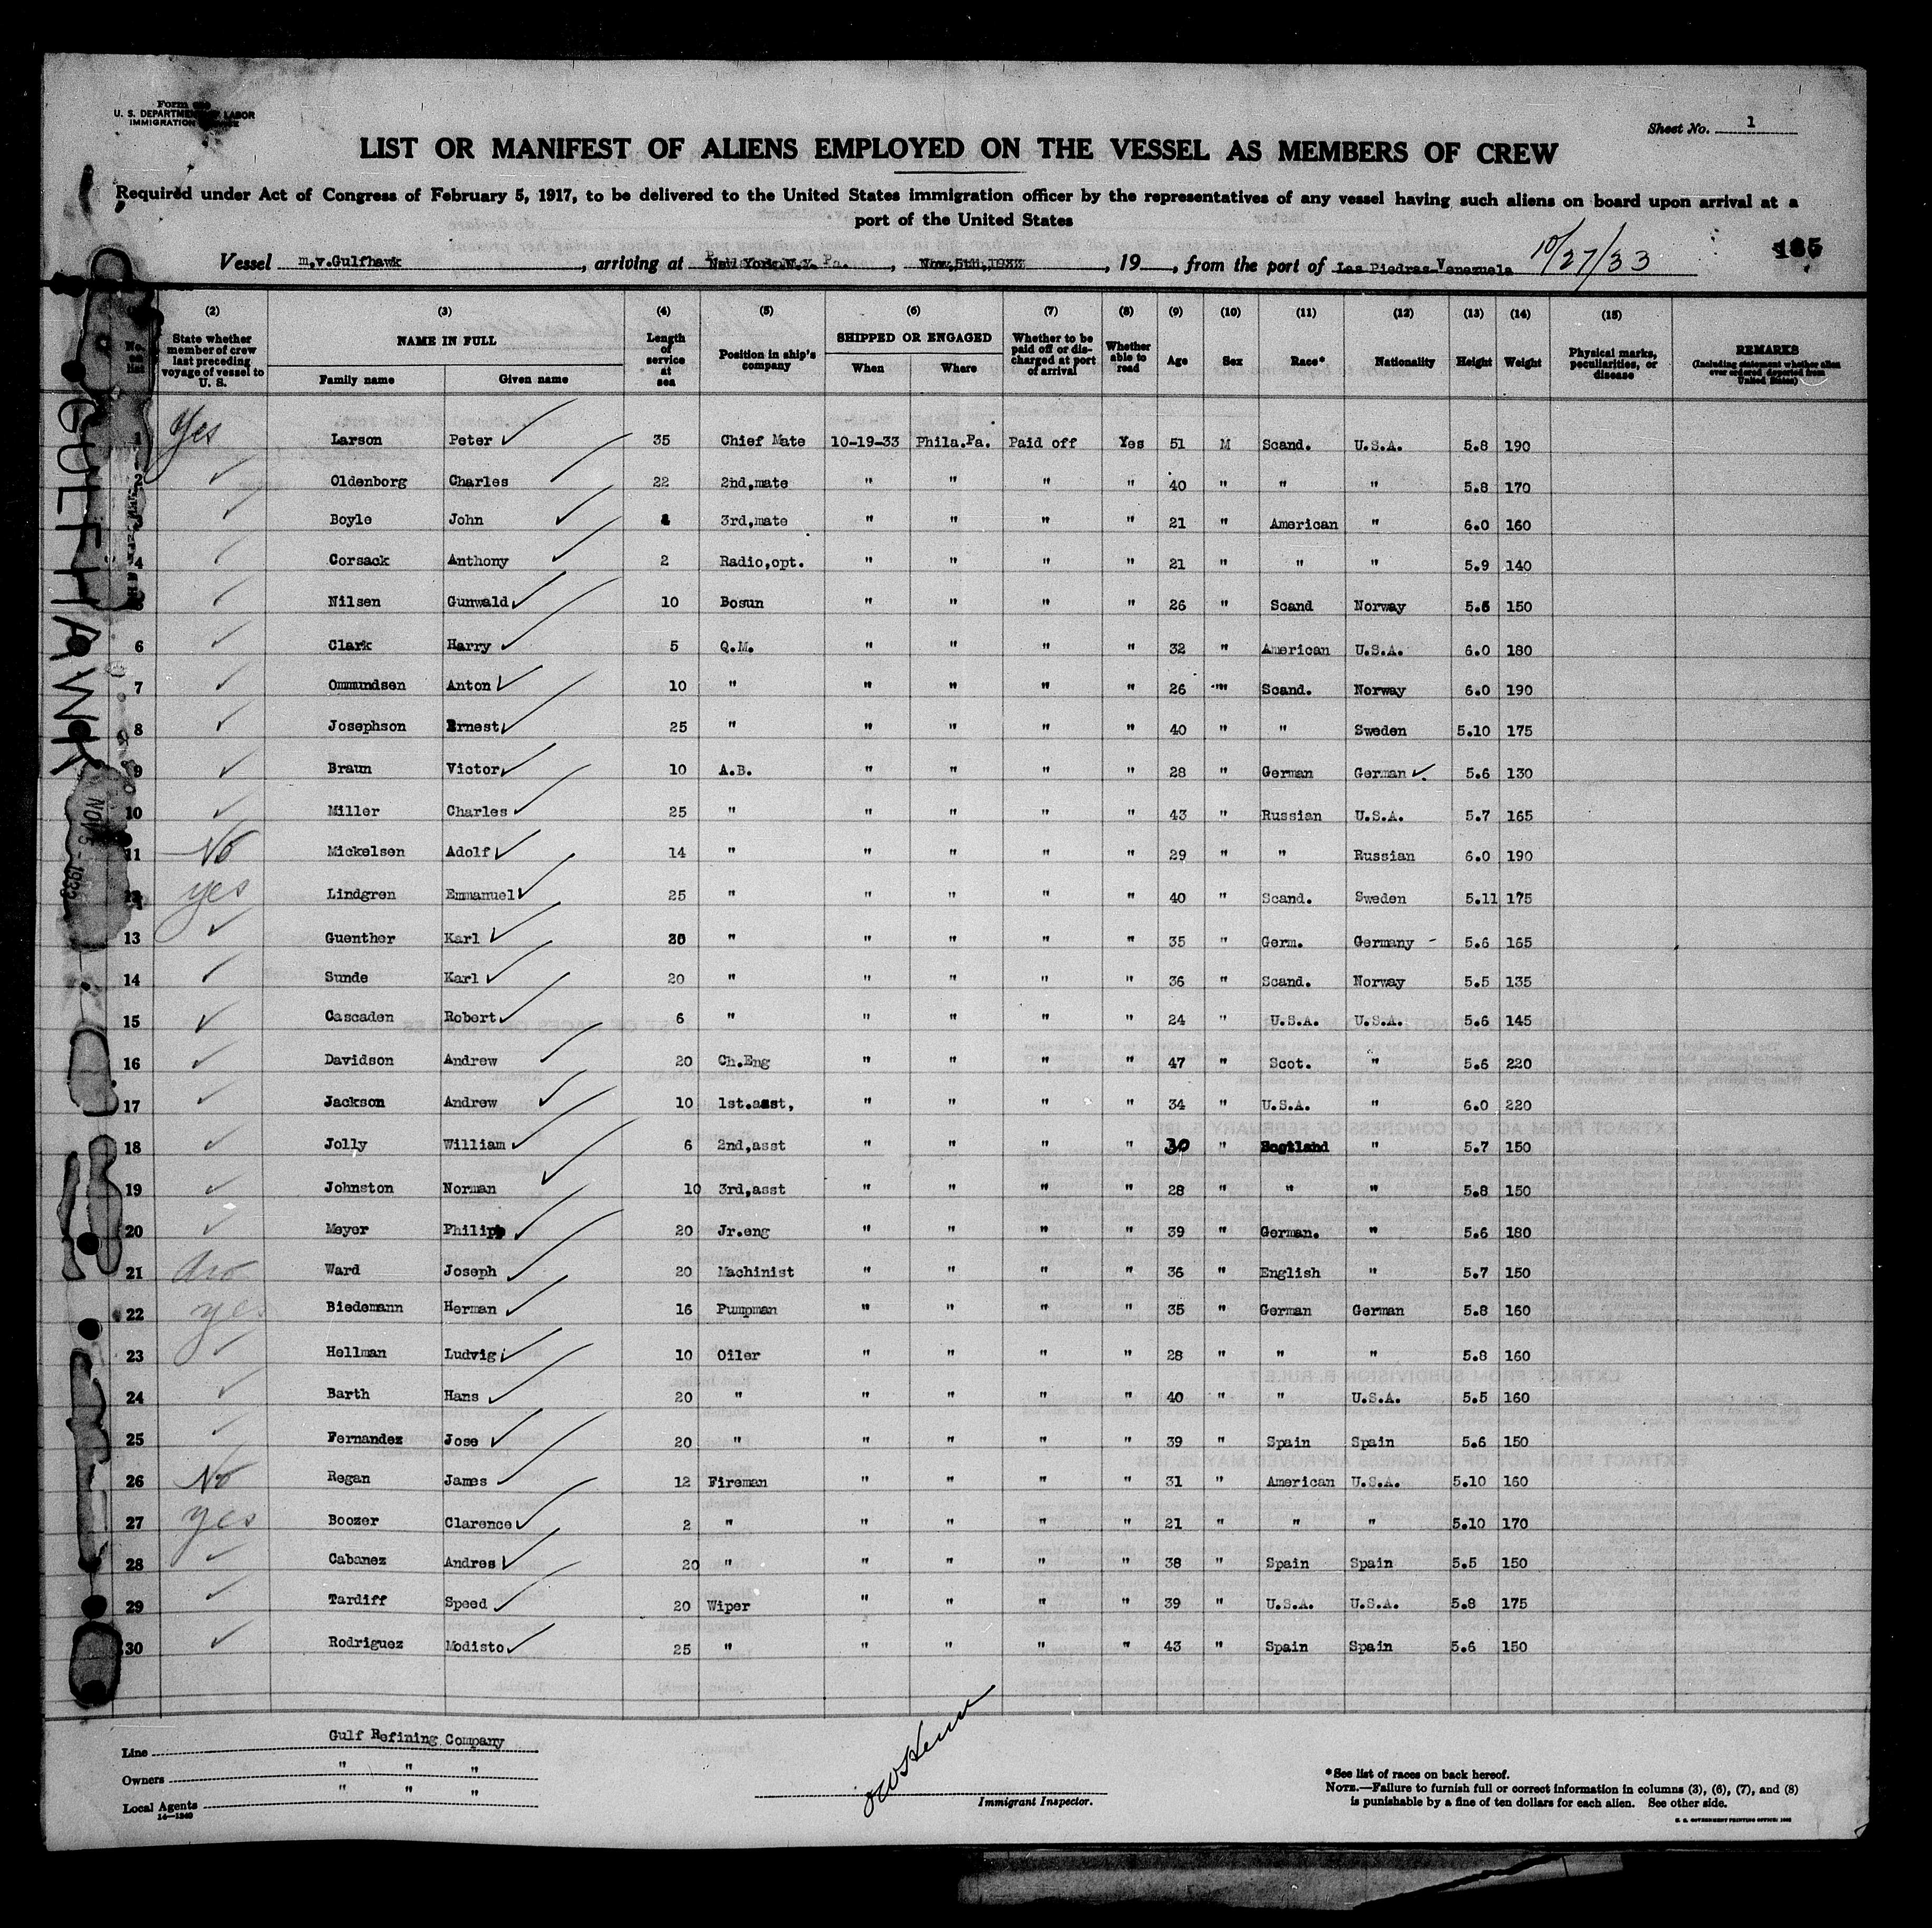 Form
U. S. DEPARTMENT OF LABOR
IMMIGRATION SERVICE
Sheet No. 1
LIST OR MANIFEST OF ALIENS EMPLOYED ON THE VESSEL AS MEMBERS OF CREW
Required under Act of Congress of February 5, 1917, to be delivered to the United States immigration officer by the representatives of any vessel having such aliens on board upon arrival at a
port of the United States
185
Vessel m.v.Gulfhawk, arriving at New York, N.Y. Pa., Nov, 5th, 1933, 19, from the port of Las Piedras-Venezuela 10/27/33
(2) (3) (4) (5) (6) (7) (8) (9) (10) (11) (12) (13) (14) (15)
No. on list State whether member of crew last preceding voyage of vessel to U. S. NAME IN FULL Family name Given name Length of service at sea Position in ship's company SHIPPED OR ENGAGED When Where Whether to be paid off or discharged at port of arrival Whether able to read Age Sex Race* Nationality Height Weight Physical marks, peculiarities, or disease REMARKS (Including statement whether alien ever ordered deported from United States)
1 Yes Larson Peter ✓ 35 Chief Mate 10-19-33 Phila.Pa. Paid off Yes 51 M Scand. U.S.A. 5.8 190
2 ✓ Oldenborg Charles ✓ 22 2nd,mate " " " " 40 " " " 5.8 170
3 ✓ Boyle John ✓ 4 3rd,mate " " " " 21 " American " 6.0 160
4 ✓ Corsack Anthony ✓ 2 Radio,opt. " " " " 21 " " " 5.9 140
5 ✓ Nilsen Gunwald ✓ 10 Bosun " " " " 26 " Scand Norway 5.6 150
6 ✓ Clark Harry ✓ 5 Q.M. " " " " 32 " American U.S.A. 6.0 180
7 ✓ Ommundsen Anton ✓ 10 " " " " " 26 " Scand. Norway 6.0 190
8 ✓ Josephson Ernest ✓ 25 " " " " " 40 " " Sweden 5.10 175
9 ✓ Braun Victor ✓ 10 A.B. " " " " 28 " German German ✓ 5.6 130
10 ✓ Miller Charles ✓ 25 " " " " " 43 " Russian U.S.A. 5.7 165
11 No Mickelsen Adolf ✓ 14 " " " " " 29 " " Russian 6.0 190
12 yes Lindgren Emmanuel ✓ 25 " " " " " 40 " Scand. Sweden 5.11 175
13 ✓ Guenther Karl ✓ 20 " " " " " 35 " Germ. Germany - 5.6 165
14 ✓ Sunde Karl ✓ 20 " " " " " 36 " Scand. Norway 5.5 135
15 ✓ Cascaden Robert ✓ 6 " " " " " 24 " U.S.A. U.S.A. 5.6 145
16 ✓ Davidson Andrew ✓ 20 Ch.Eng " " " " 47 " Scot. " 5.6 220
17 ✓ Jackson Andrew ✓ 10 1st.asst, " " " " 34 " U.S.A. " 6.0 220
18 ✓ Jolly William ✓ 6 2nd,asst " " " " 30 " Scotland " 5.7 150
19 ✓ Johnston Norman ✓ 10 3rd,asst " " " " 28 " " " 5.8 150
20 ✓ Meyer Philipp ✓ 20 Jr.eng " " " " 39 " German. " 5.6 180
21 No Ward Joseph ✓ 20 Machinist " " " " 36 " English " 5.7 150
22 yes Biedemann Herman ✓ 16 Pumpman " " " " 35 " German German 5.8 160
23 ✓ Hellman Ludvig ✓ 10 Oiler " " " " 28 " " " 5.8 160
24 ✓ Barth Hans ✓ 20 " " " " " 40 " " U.S.A. 5.5 160
25 ✓ Fernandez Jose ✓ 20 " " " " " 39 " Spain Spain 5.6 150
26 No Regan James ✓ 12 Fireman " " " " 31 " American U.S.A. 5.10 160
27 yes Boozer Clarence ✓ 2 " " " " " 21 " " " 5.10 170
28 ✓ Cabanez Andres ✓ 20 " " " " " 38 " Spain Spain 5.5 150
29 ✓ Tardiff Speed ✓ 20 Wiper " " " " 39 " U.S.A. U.S.A. 5.8 175
30 ✓ Rodriguez Modisto ✓ 25 " " " " " 43 " Spain Spain 5.6 150
GULFHAWK
NOV 5 - 1933
Line Gulf Refining Company
Owners " " "
Local Agents " " "
14-1240
Immigrant Inspector.
*See list of races on back hereof.
NOTE.—Failure to furnish full or correct information in columns (3), (6), (7), and (8)
is punishable by a fine of ten dollars for each alien. See other side.
U. S. GOVERNMENT PRINTING OFFICE: